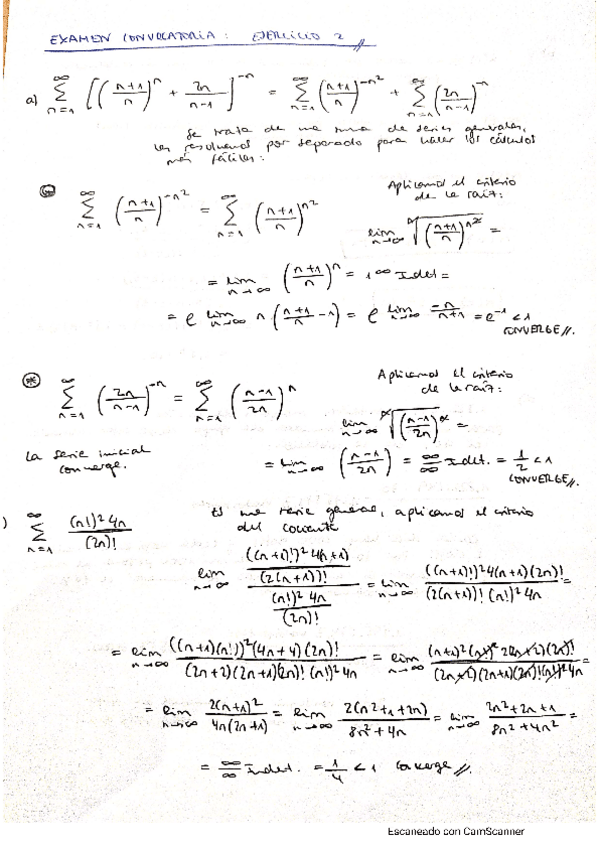 EXAMEN CONVOCATORIA : EJERCICIO 2
a) ∞ Σ n=1 [((n+1)/n)^n + 2n/(n-1)]^-n = ∞ Σ n=1 ((n+1)/n)^-n² + ∞ Σ n=1 (2n/(n-1))^-n
Se trata de una suma de series generales,
las resolvemos por separado para hacer los cálculos
más fáciles:
Aplicamos el criterio
de la raíz:
∞ Σ n=1 ((n+1)/n)^-n² = ∞ Σ n=1 ((n+1)/n)^n²
lim n→∞ ⁿ√((n+1)/n)^n² =
= lim n→∞ ((n+1)/n)^n = 1^∞ Indet =
= e lim n→∞ n ((n+1)/n - 1) = e lim n→∞ -n/(n+1) = e^-1 < 1
CONVERGE//.
Aplicamos el criterio
de la raíz:
∞ Σ n=1 (2n/(n-1))^-n = ∞ Σ n=1 ((n-1)/2n)^n
lim n→∞ ⁿ√((n-1)/2n)^n =
La serie inicial
converge.
= lim n→∞ ((n-1)/2n) = ∞/∞ Indet. = 1/2 < 1
CONVERGE//.
) ∞ Σ n=1 (n!)² 4n/(2n)!
Es una serie general, aplicamos el criterio
del cociente
lim n→∞ (((n+1)!)² 4(n+1)/(2(n+1))!)/((n!)² 4n/(2n)!) = lim n→∞ ((n+1)!)² 4(n+1)(2n)!/(2(n+1))! (n!)² 4n =
= lim n→∞ ((n+1)(n!))² (4n+4)(2n)!/(2n+2)(2n+1)(2n)! (n!)² 4n = lim n→∞ (n+1)² (n!)² 2(2n+2)(2n)!/(2n+2)(2n+1)(2n)!(n!)² 4n
= lim n→∞ 2(n+1)²/4n(2n+1) = lim n→∞ 2(n²+1+2n)/8n²+4n = lim n→∞ 2n²+2n+1/8n²+4n² =
= ∞/∞ Indet. = 1/4 < 1 Converge //.
Escaneado con CamScanner